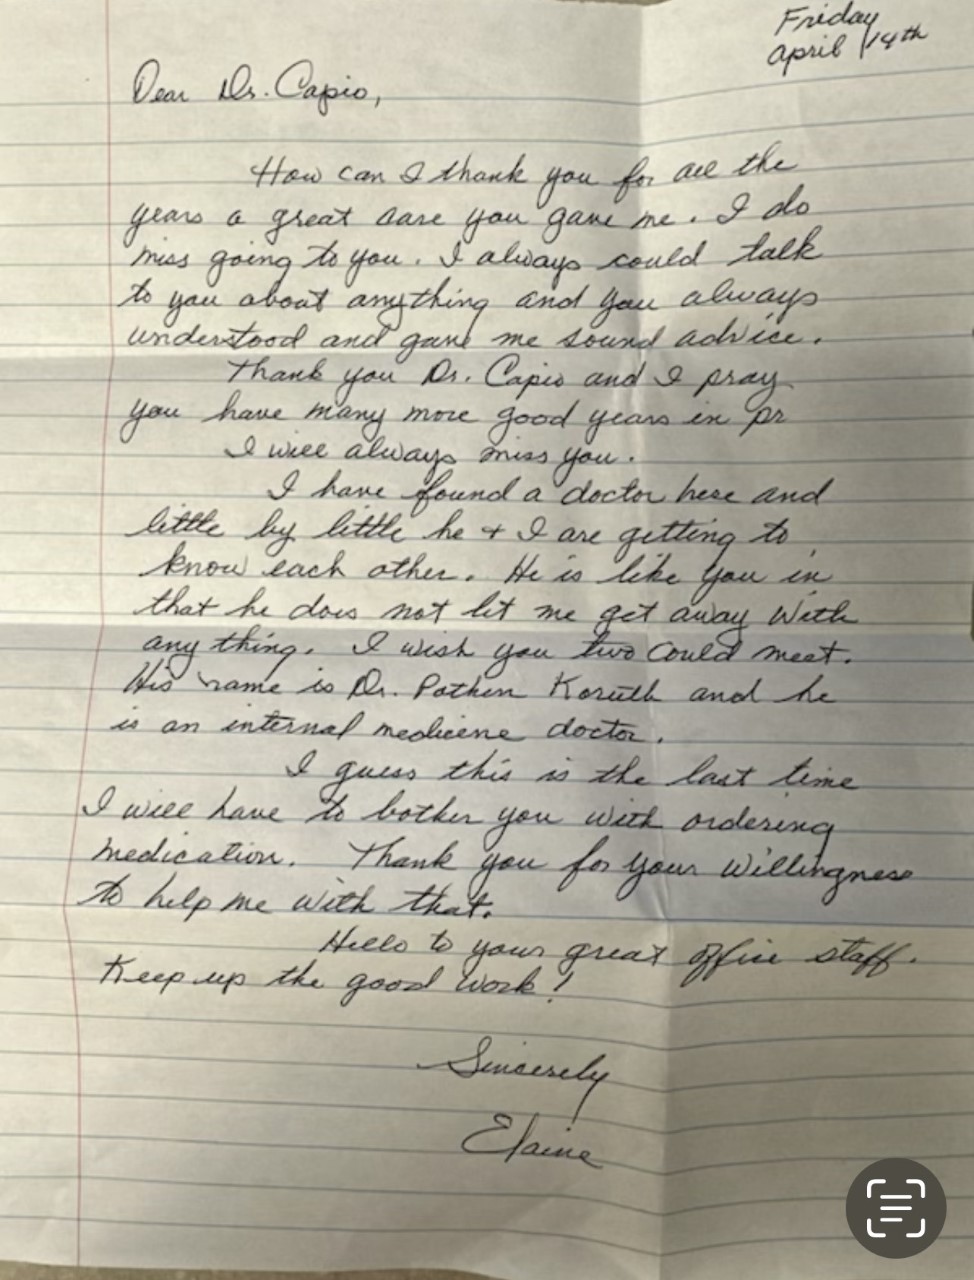 Friday
April 14th
Dear Dr. Capio,
How can I thank you for all the
years a great care you gave me. I do
miss going to you. I always could talk
to you about anything and you always
understood and gave me sound advice.
Thank you Dr. Capio and I pray
you have many more good years in pr
I will always miss you.
I have found a doctor here and
little by little he + I are getting to
know each other. He is like you in
that he does not let me get away with
any thing. I wish you two could meet.
His name is Dr. Pothen Koruth and he
is an internal medicine doctor.
I guess this is the last time
I will have to bother you with ordering
medication. Thank you for your willingness
to help me with that.
Hello to your great office staff.
Keep up the good work!
Sincerely
Elaine